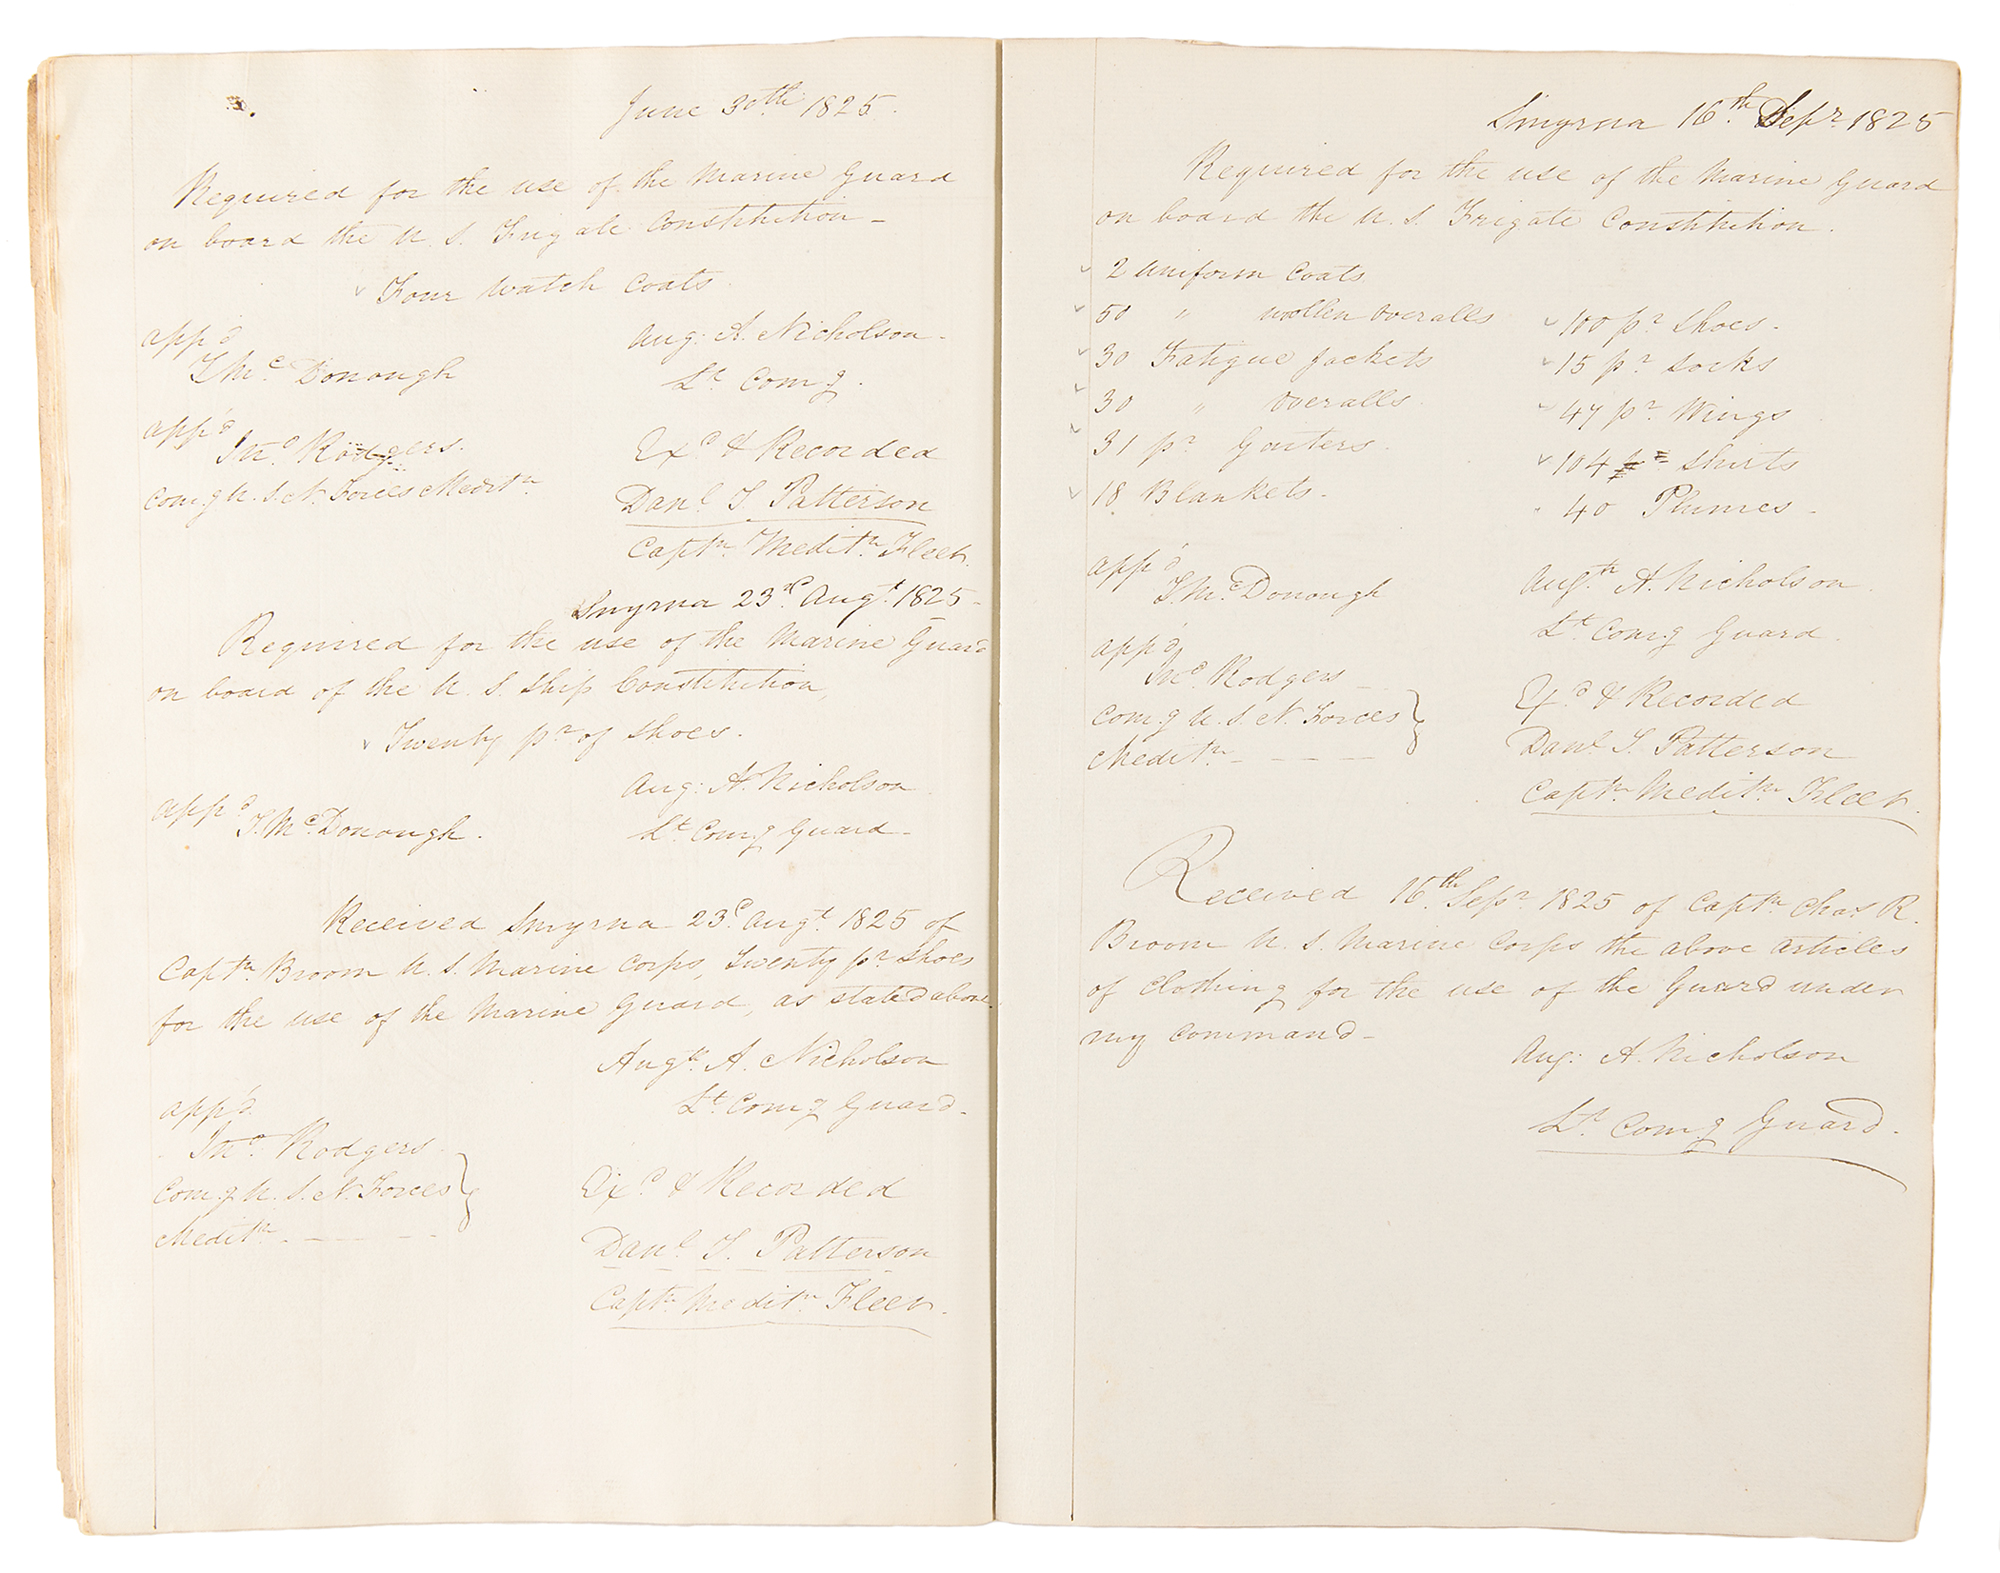 June 30th 1825.
Required for the use of the Marine Guard
on board the U. S. Frigate Constitution –
Four watch Coats
app'd
T. McDonough
Aug: A. Nicholson
Lt Comg.
app'd
Jno Rodgers.
Comg U. S. N. Forces Meditn
Exd & Recorded
Danl T. Patterson
Captn Meditn Fleet.
Smyrna 23rd Augt 1825 –
Required for the use of the Marine Guard
on board of the U. S. Ship Constitution,
Twenty pr of Shoes.
Aug: A. Nicholson
Lt Comg Guard –
appd
T. McDonough.
Received Smyrna 23d Augt 1825 of
Captn Broom U. S. Marine Corps, Twenty pr Shoes
for the use of the Marine Guard, as stated above
Augts A. Nicholson
Lt Comg Guard –
app'd
Jno Rodgers
Comg U. S. N. Forces
Meditn
Exd & Recorded
Danl T. Patterson
Captn Meditn Fleet.
Smyrna 16th Sepr 1825
Required for the use of the Marine Guard
on board the U. S. Frigate Constitution.
2 Uniform Coats
50 " woollen overalls
30 Fatigue Jackets
30 " overalls
31 pr Gaiters
18 Blankets –
100 pr Shoes –
15 pr Socks
47 pr Wings
104 pr Shirts
40 Plumes –
app'd
T. McDonough
Augtn A. Nicholson
Lt Comg Guard.
app'd
Jno Rodgers
Comg U. S. N. Forces
Meditn
Exd & Recorded
Danl T. Patterson
Captn Meditn Fleet.
Received 16th Sepr 1825 of Captn Chas R.
Broom U. S. Marine Corps the above articles
of Clothing for the use of the Guard under
my Command –
Aug: A. Nicholson
Lt Comg Guard.